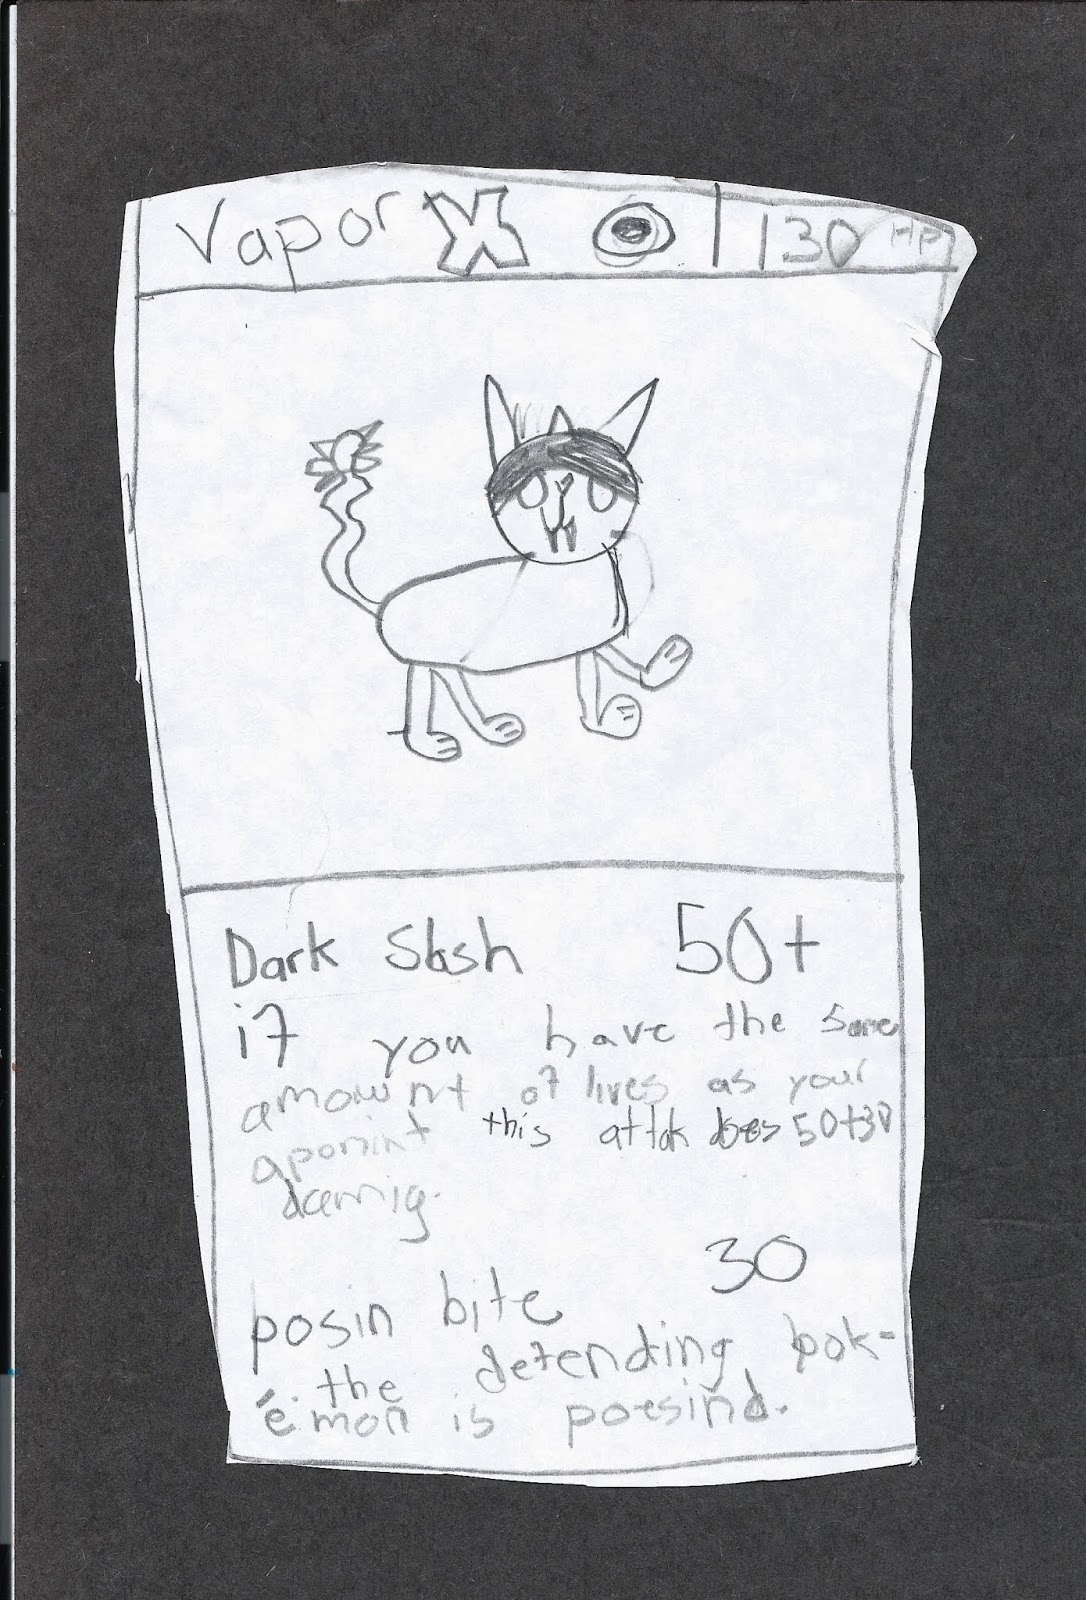 Vapor X 130 HP
Dark Slash 50+
if you have the same
amownt of lives as your
aponint this attak does 50+30
damig.
posin bite 30
the defending pok-
émon is poesind.